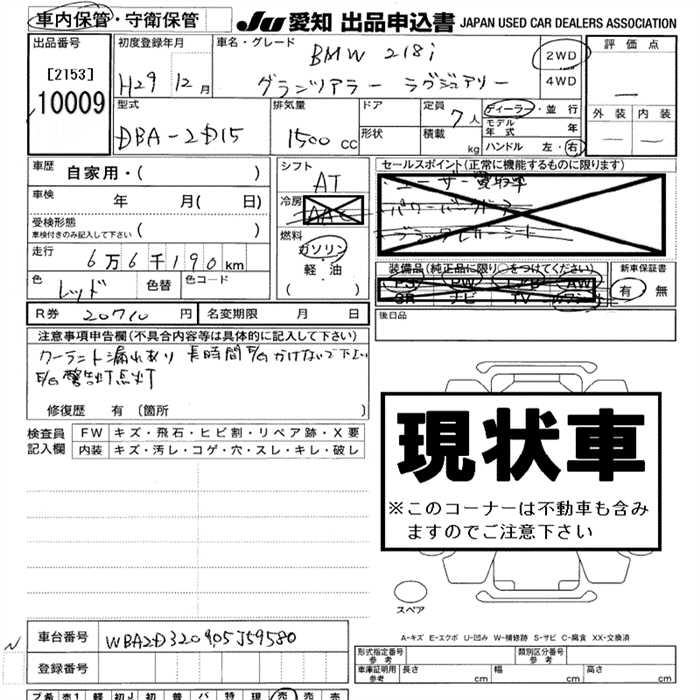 車内保管・守衛保管
JU 愛知 出品申込書 JAPAN USED CAR DEALERS ASSOCIATION
出品番号
[2153]
10009
初度登録年月
H29年 12月
車名・グレード
BMW 218i
グランツアラー ラグジュアリー
2WD
4WD
評価点
外装 内装
型式
DBA-2D15
排気量
1500 cc
ドア
形状
定員
7人
積載
kg
ディーラー・並行
モデル年式 年
ハンドル 左・右
車歴
自家用・( )
車検
年 月( 日)
受検形態
車検付きのみ記入して下さい ( )
走行
6万6千190km
色
レッド
色替
色コード
R券 20710 円
名変期限 月 日
シフト
AT
冷房
AAC
燃料
ガソリン
軽・油
( )
セールスポイント(正常に機能するものに限ります)
ユーザー買取車
パワーバックドア
ブラックレザーシート
装備品(純正品に限り○をつけてください)
PS PW エアB AW
SR ナビ TV カワシート
新車保証書
有 無
後日品
注意事項申告欄(不具合内容等は具体的に記入して下さい)
クーラント漏れあり 長時間E/Gかけないで下さい
E/G警告灯点灯
修復歴 有 〔箇所 〕
検査員
記入欄
FW キズ・飛石・ヒビ割・リペア跡・X要
内装 キズ・汚レ・コゲ・穴・スレ・キレ・破レ
現状車
※このコーナーは不動車も含み
ますのでご注意下さい
スペア
A-キズ E-エクボ U-凹み W-補修跡 S-サビ C-腐食 XX-交換済
N
車台番号 WBA2D320905J59580
登録番号
形式指定番号
参考
類別区分番号
参考
車庫証明用
参考
長さ cm
幅 cm
高さ cm